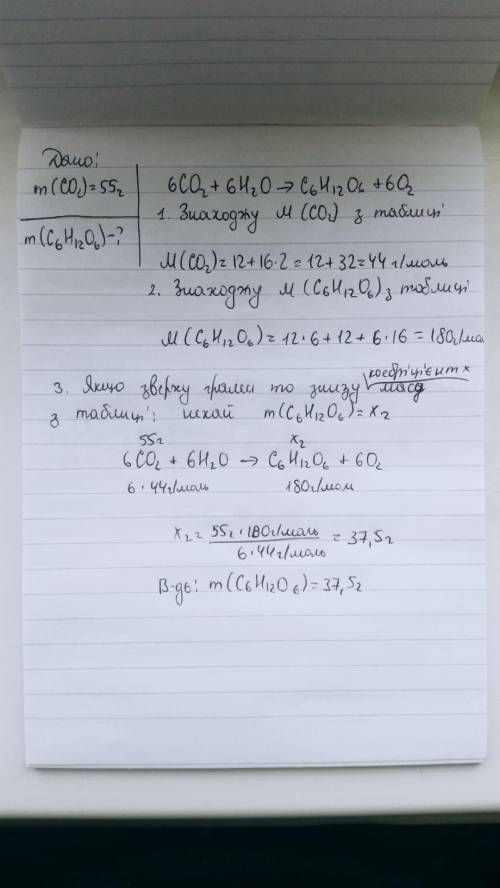 Дано:
m(CO₂)=55г
m(C₆H₁₂O₆)-?
6CO₂ + 6H₂O → C₆H₁₂O₆ + 6O₂
1. Знаходжу M(CO₂) з таблиці
M(CO₂)=12+16·2=12+32=44 г/моль
2. Знаходжу M(C₆H₁₂O₆) з таблиці
M(C₆H₁₂O₆)=12·6+12+6·16=180г/мо
коефіцієнт ×
3. Якщо зверху грами то знизу маса
з таблиці: нехай m(C₆H₁₂O₆)=xг
55г xг
6CO₂ + 6H₂O → C₆H₁₂O₆ + 6O₂
6·44г/моль 180г/мол
xг = 55г·180г/моль / 6·44г/моль = 37,5г
В-дь: m(C₆H₁₂O₆)=37,5г